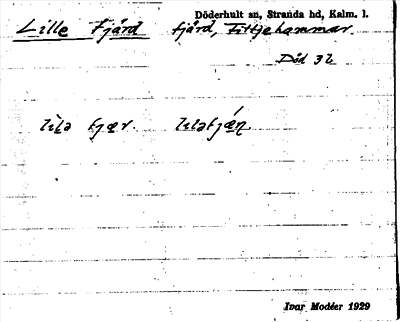 Döderhult sn, Stranda hd, Kalm. l.
Lille Fjärd fjärd, Fittjehammar.
Död 32
lilə fjær. liləfjæṇ
Ivar Modéer 1929